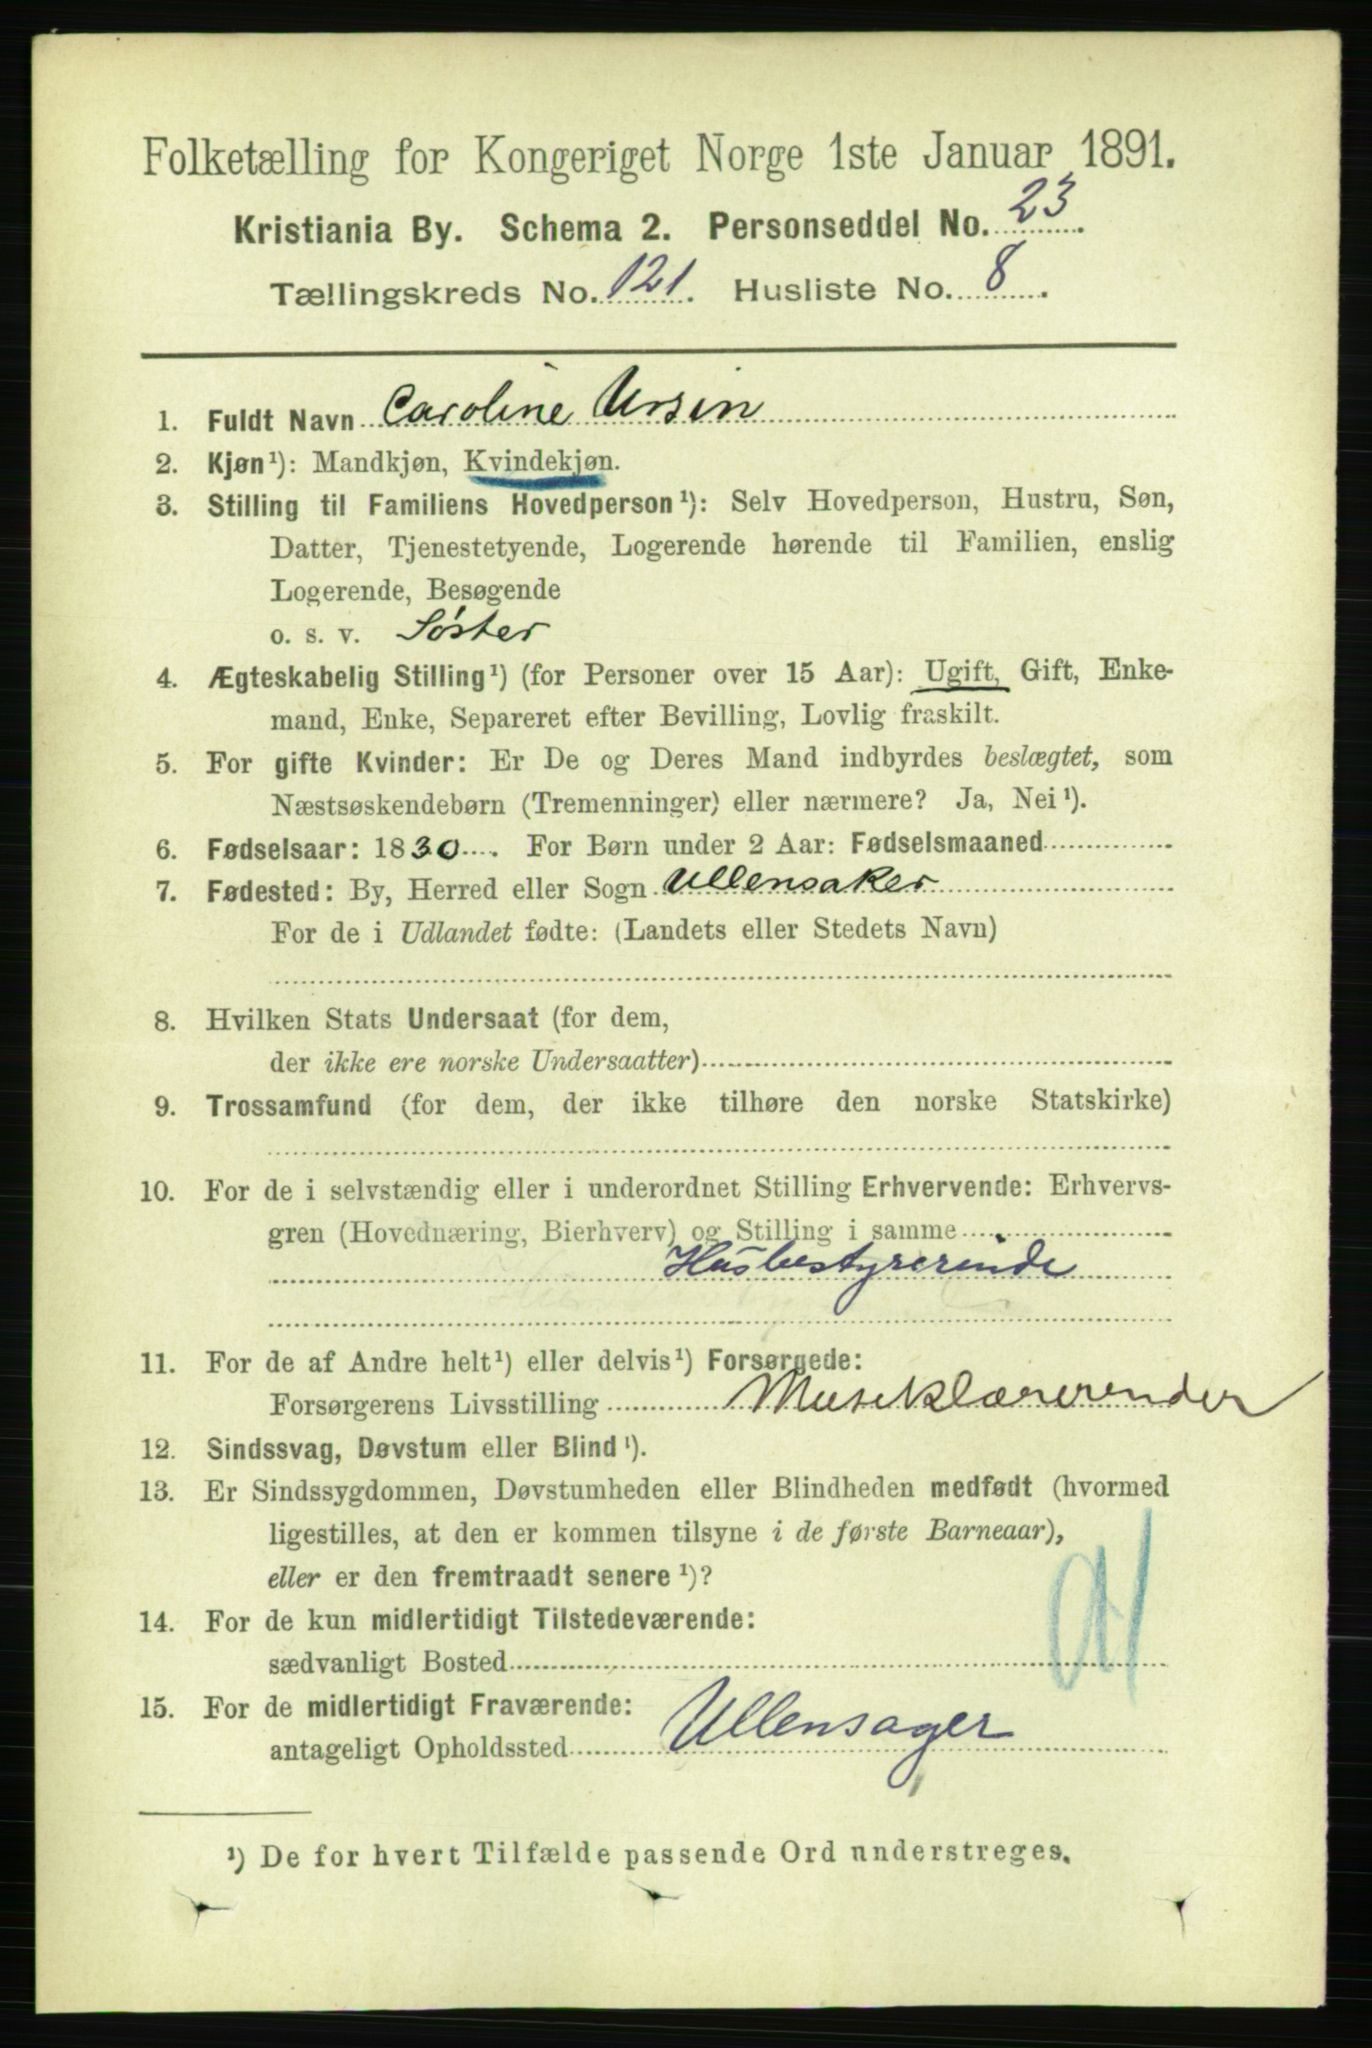 Folketælling for Kongeriget Norge 1ste Januar 1891.
Kristiania By. Schema 2. Personseddel No. 23.
Tællingskreds No. 121. Husliste No. 8.
1. Fuldt Navn Caroline Ursin
2. Kjøn¹): Mandkjøn, Kvindekjøn.
3. Stilling til Familiens Hovedperson¹): Selv Hovedperson, Hustru, Søn,
Datter, Tjenestetyende, Logerende hørende til Familien, enslig
Logerende, Besøgende
o. s. v. Søster
4. Ægteskabelig Stilling¹) (for Personer over 15 Aar): Ugift, Gift, Enke-
mand, Enke, Separeret efter Bevilling, Lovlig fraskilt.
5. For gifte Kvinder: Er De og Deres Mand indbyrdes beslægtet, som
Næstsøskendebørn (Tremenninger) eller nærmere? Ja, Nei¹).
6. Fødselsaar: 1830. For Børn under 2 Aar: Fødselsmaaned
7. Fødested: By, Herred eller Sogn Ullensaker
For de i Udlandet fødte: (Landets eller Stedets Navn)
8. Hvilken Stats Undersaat (for dem,
der ikke ere norske Undersaatter)
9. Trossamfund (for dem, der ikke tilhøre den norske Statskirke)
10. For de i selvstændig eller i underordnet Stilling Erhvervende: Erhvervs-
gren (Hovednæring, Bierhverv) og Stilling i samme
Husbestyrerinde
11. For de af Andre helt¹) eller delvis¹) Forsørgede:
Forsørgerens Livsstilling Musiklærerender
12. Sindssvag, Døvstum eller Blind¹).
13. Er Sindssygdommen, Døvstumheden eller Blindheden medfødt (hvormed
ligestilles, at den er kommen tilsyne i de første Barneaar),
eller er den fremtraadt senere¹)?
14. For de kun midlertidigt Tilstedeværende:
sædvanligt Bosted
15. For de midlertidigt Fraværende:
antageligt Opholdssted Ullensager
¹) De for hvert Tilfælde passende Ord understreges.